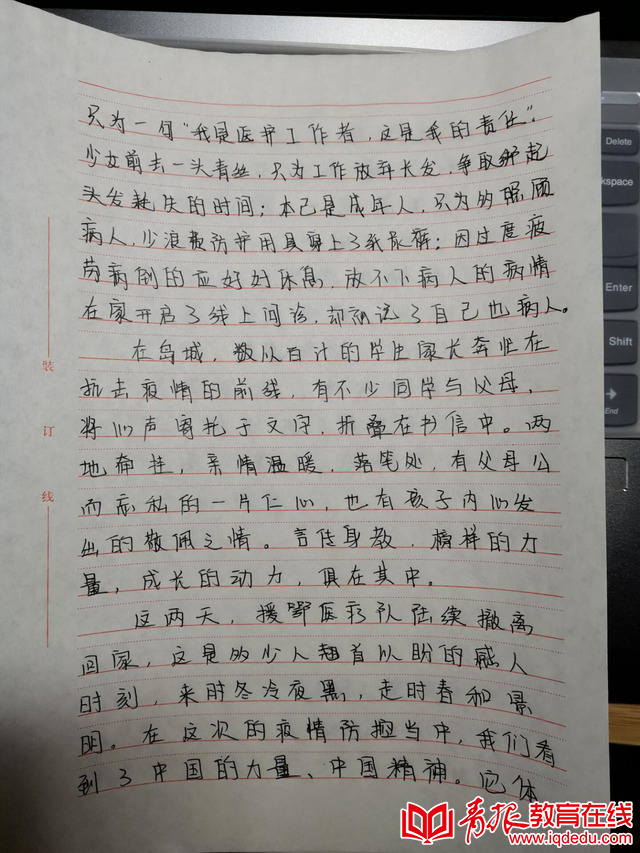 只为一句"我是医护工作者，这是我的责任"。
少女剪去一头青丝，只为工作放弃长发，争取 起
头发耗失的时间；本已是成年人，只为 照顾
病人，少浪费防护用具穿上了纸尿裤；因过度疲
劳病倒的应好好休息，放不下病人的病情
在家开启了线上问诊，却 了自己也病人。
在岛城，数以百计的学生家长奔忙在
抗击疫情的前线，有不少同学与父母，
将心声寄托于文字，折叠在书信中。两
地牵挂，亲情温暖，落笔处，有父母公
而忘私的一片仁心，也有孩子内心发
出的敬佩之情。言传身教，榜样的力
量，成长的动力，俱在其中。
这两天，援鄂医疗队陆续撤离
回家，这是多少人翘首以盼的感人
时刻，来时冬冷夜黑，走时春和景
明。在这次的疫情防控当中，我们看
到了中国的力量、中国精神。它体
装
订
线
Delete
kspace
Enter
Shift
End
青报教育在线
www.iqdedu.com